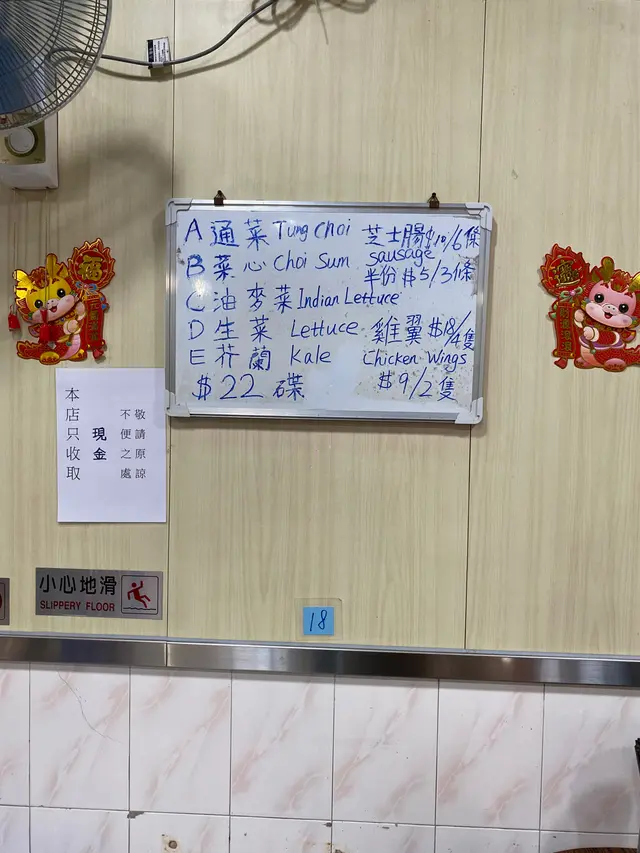 A 通菜 Tung Choi
B 菜心 Choi Sum
C 油麥菜 Indian Lettuce
D 生菜 Lettuce
E 芥蘭 Kale
$22 碟
芝士腸 $10/6條
sausage
半份 $5/3條
雞翼 $18/4隻
Chicken Wings
$9/2隻
福
本店只收取
現金
敬請原諒
不便之處
小心地滑
SLIPPERY FLOOR
18